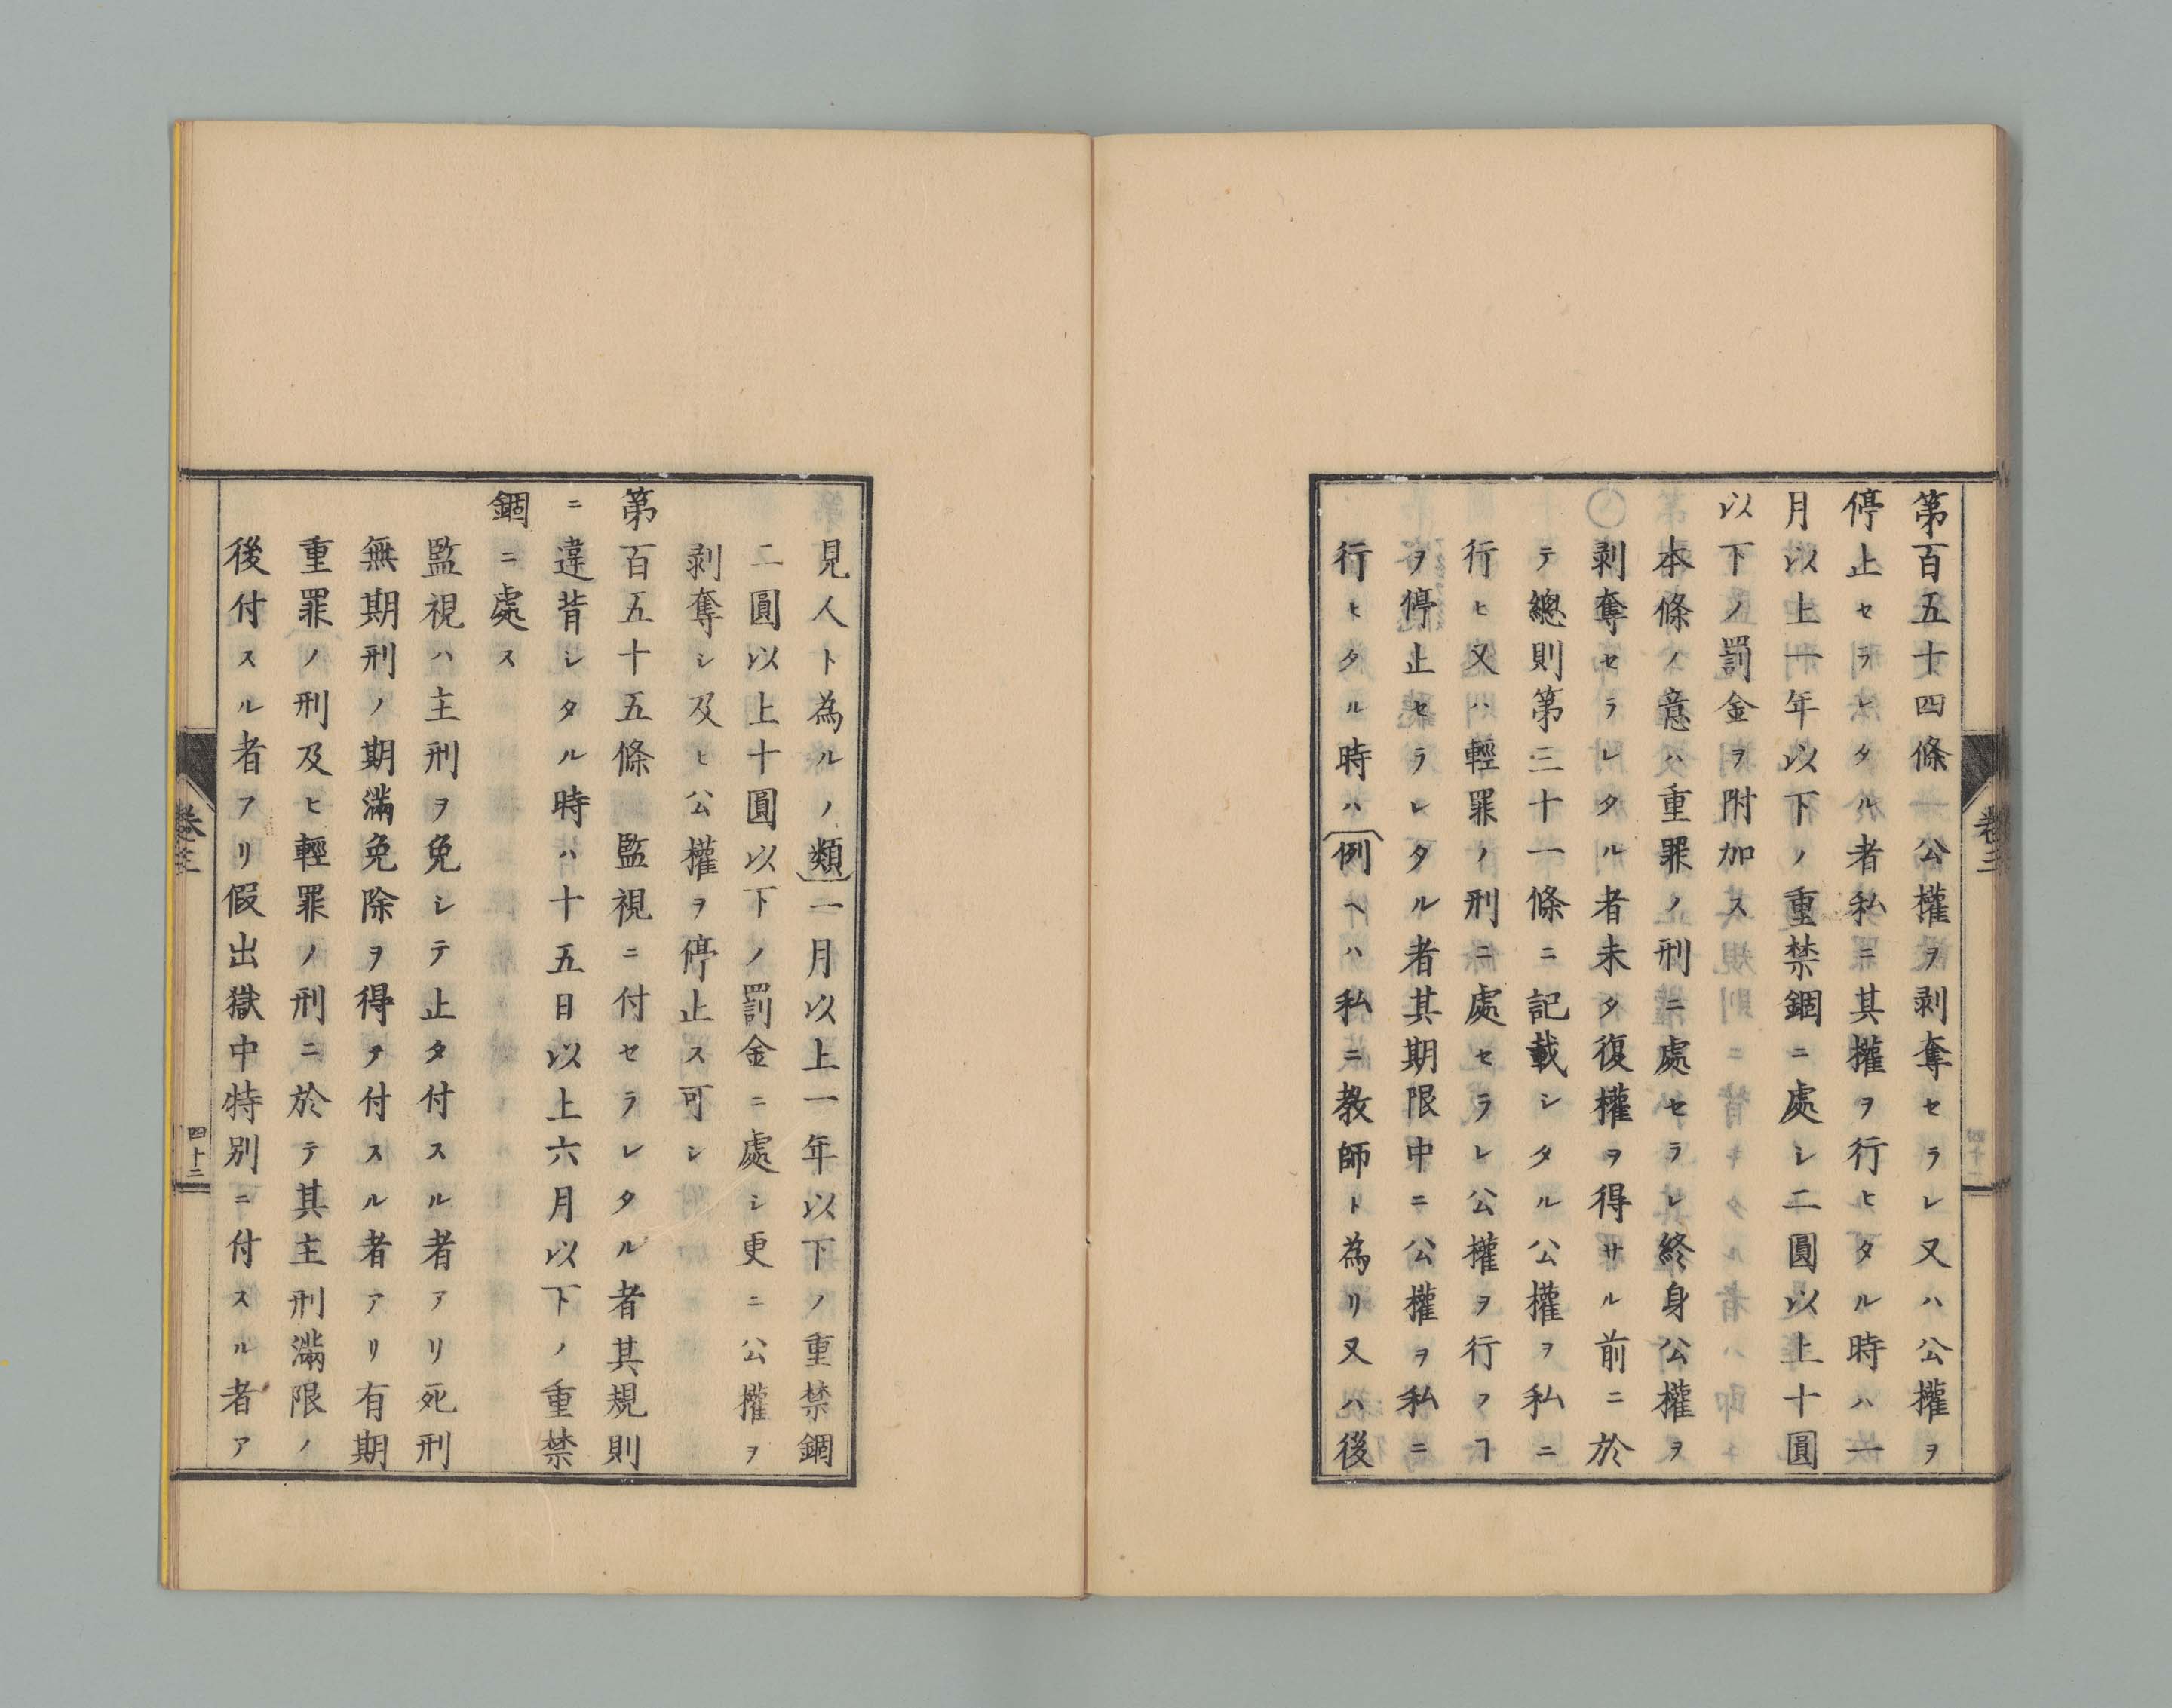 第百五十四條　公權ヲ剥奪セラレ又ハ公權ヲ
停止セラレタル者私ニ其權ヲ行ヒタル時ハ一
月以上一年以下ノ重禁錮ニ處シ二圓以上十圓
以下ノ罰金ヲ附加ス
本條ノ意ハ重罪ノ刑ニ處セラレ終身公權ヲ
剥奪セラレタル者未タ復權ヲ得サル前ニ於
テ總則第三十一條ニ記載シタル公權ヲ私ニ
行ヒ又ハ輕罪ノ刑ニ處セラレ公權ヲ行フヿ
ヲ停止セラレタル者其期限中ニ公權ヲ私ニ
行ヒタル時ハ(例ヘハ私ニ教師ト為リ又ハ後
卷三
見人ト為ルノ類)一月以上一年以下ノ重禁錮
二圓以上十圓以下ノ罰金ニ處シ更ニ公權ヲ
剥奪シ及ヒ公權ヲ停止ス可シ
第百五十五條　監視ニ付セラレタル者其規則
ニ違背シタル時ハ十五日以上六月以下ノ重禁
錮ニ處ス
監視ハ主刑ヲ免シテ止タ付スル者アリ死刑
無期刑ノ期滿免除ヲ得テ付スル者アリ有期
重罪ノ刑及ヒ輕罪ノ刑ニ於テ其主刑滿限ノ
後付スル者アリ假出獄中特別ニ付スル者ア
卷三
四十二